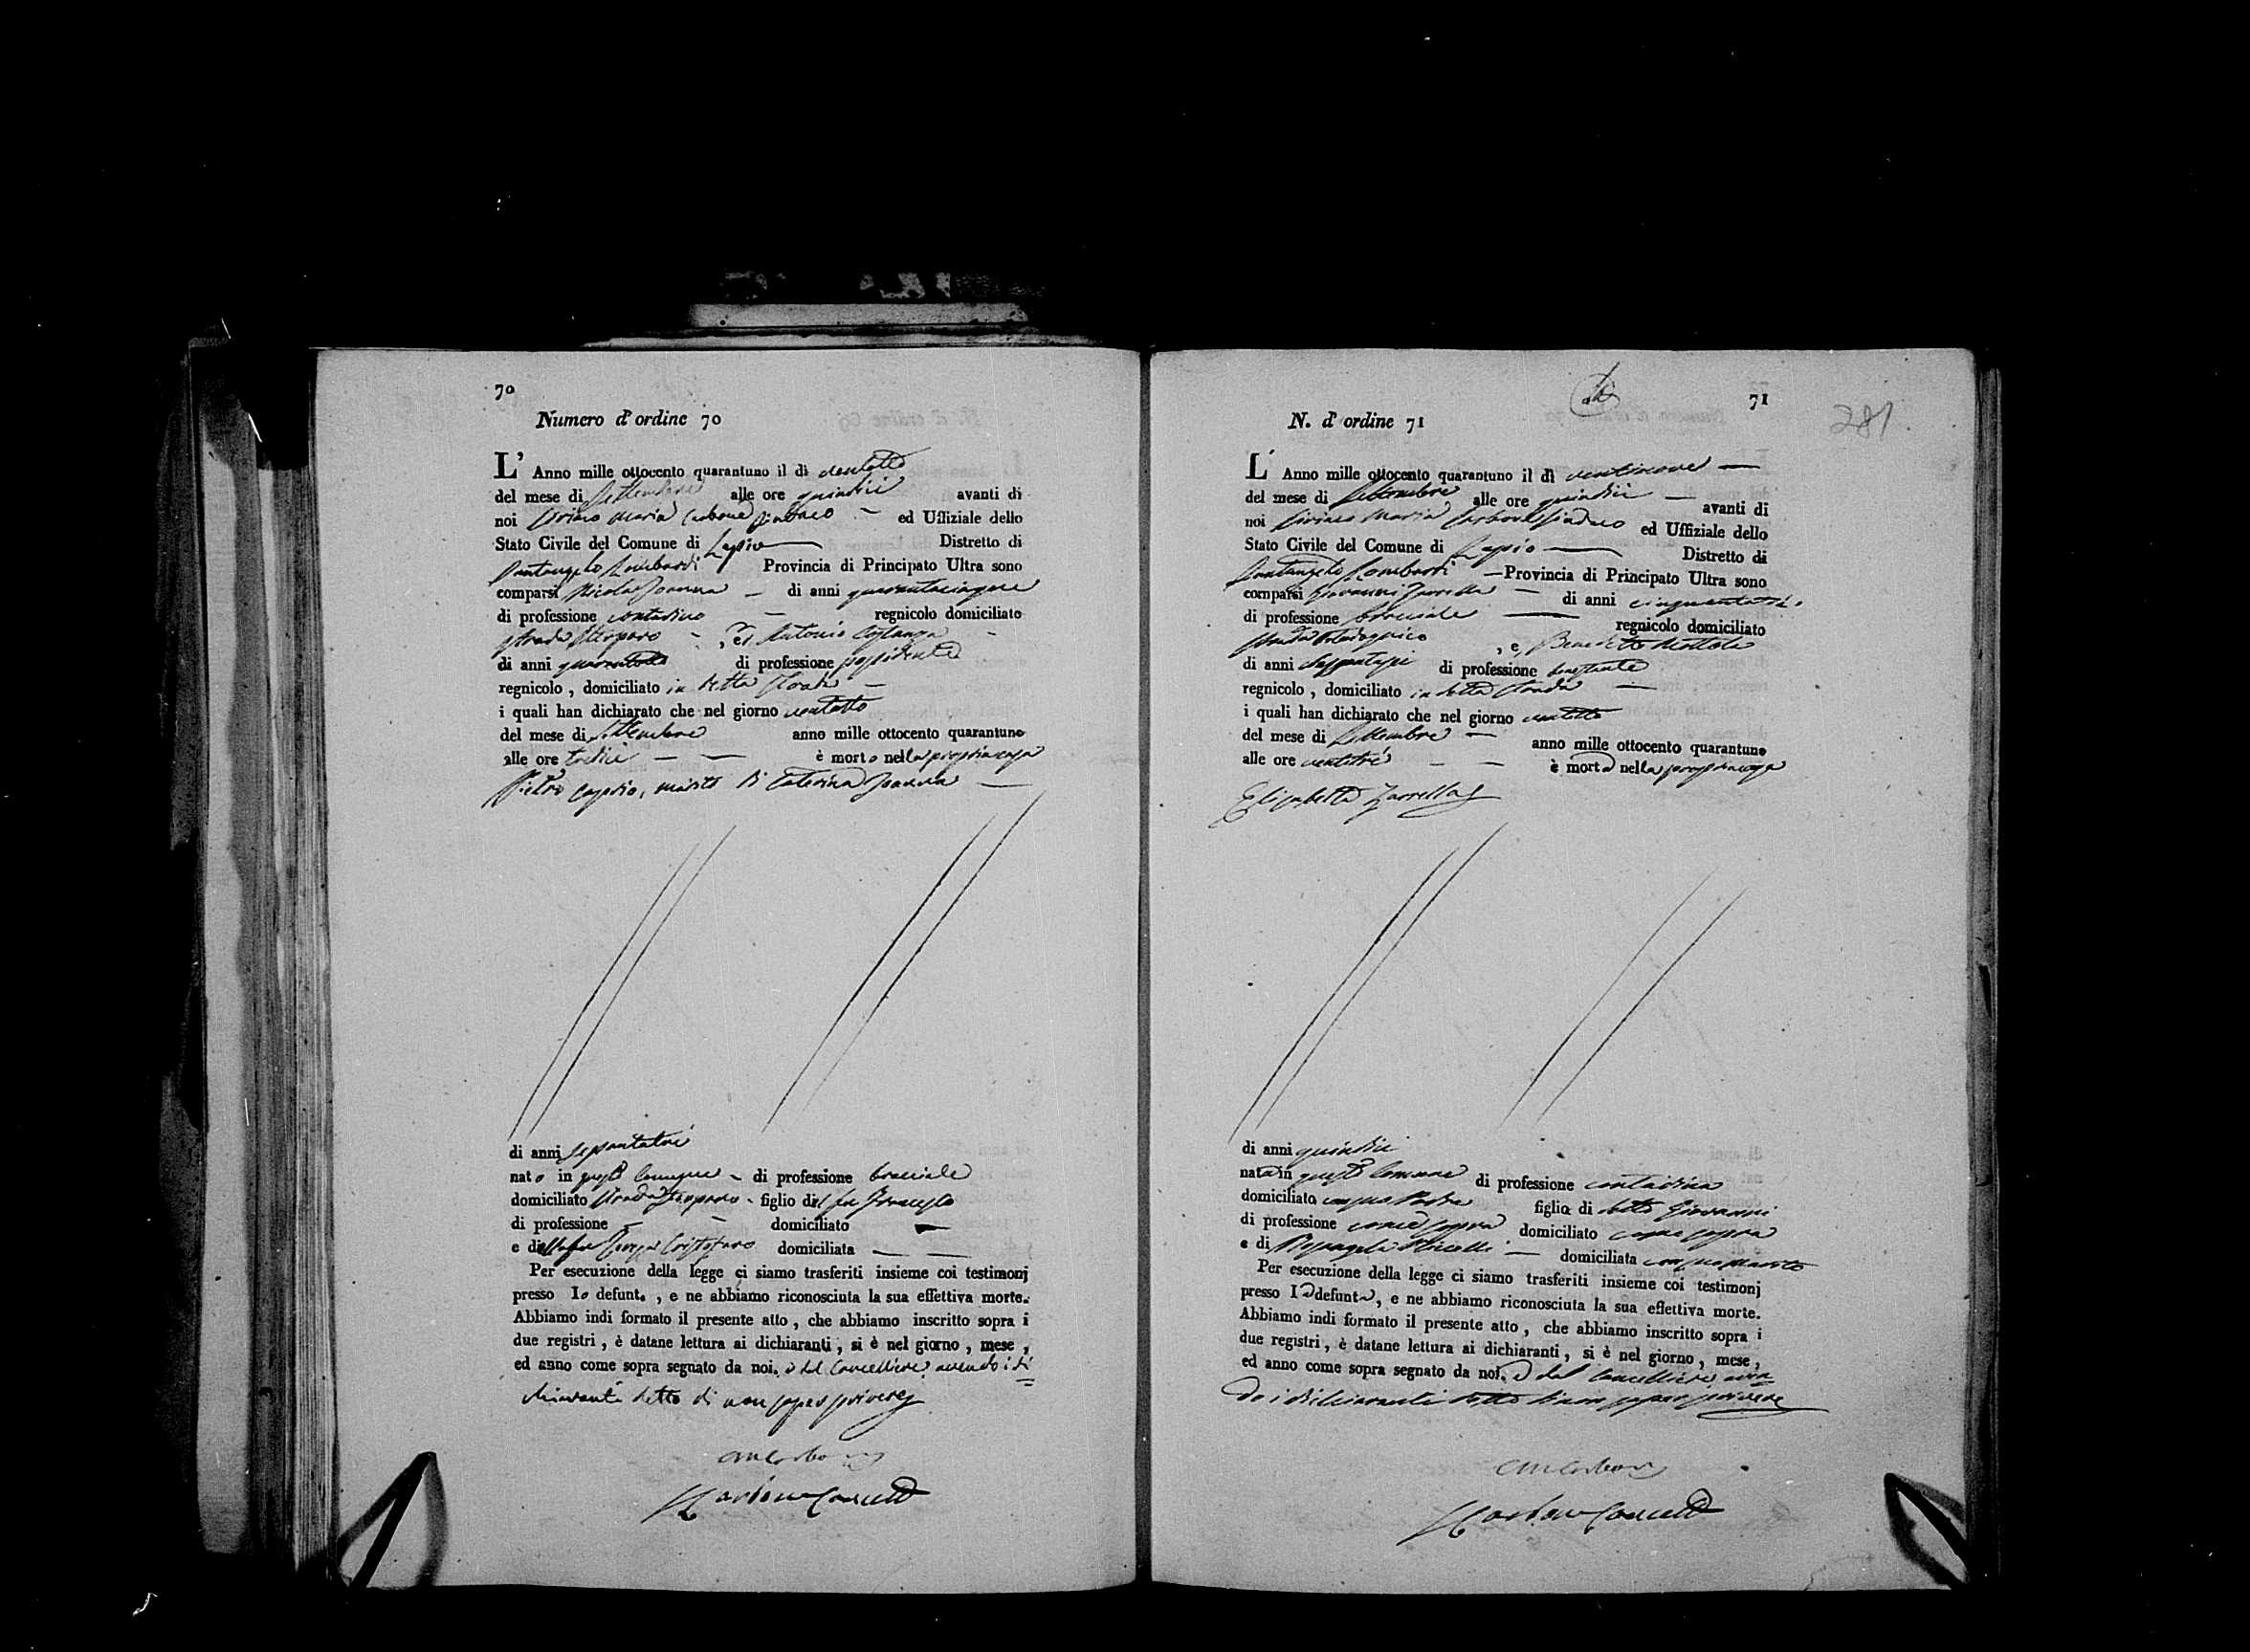 70
Numero d'ordine 70
L' Anno mille ottocento quarantuno il dì ventotto
del mese di Settembre alle ore quindici avanti di
noi Ciriaco Maria Carbone Sindaco ed Uffiziale dello
Stato Civile del Comune di Lapio Distretto di
Santangelo Lombardi Provincia di Principato Ultra sono
comparsi Nicola Joanna di anni quarantacinque
di professione contadino regnicolo domiciliato
strada , ed Antonio Costanza
di anni di professione possidente
regnicolo , domiciliato in detta strada
i quali han dichiarato che nel giorno ventotto
del mese di Settembre anno mille ottocento quarantuno
alle ore tredici è morto nella propria casa
Pietro Caprio, marito di Caterina Joanna
di anni sessantatrè
nato in questo Comune di professione bracciale
domiciliato strada figlio del fu
di professione domiciliato
e della fu Cristofaro domiciliata
Per esecuzione della legge ci siamo trasferiti insieme coi testimonj
presso lo defunto , e ne abbiamo riconosciuta la sua effettiva morte.
Abbiamo indi formato il presente atto , che abbiamo inscritto sopra i
due registri , è datane lettura ai dichiaranti , si è nel giorno , mese ,
ed anno come sopra segnato da noi. e dal Cancelliere avendo i di=
chiaranti detto di non saper scrivere
CMCarbone
Carbone Cancell
71
281
N. d' ordine 71
L' Anno mille ottocento quarantuno il dì ventinove
del mese di Settembre alle ore quindici avanti di
noi Ciriaco Maria Carbone Sindaco ed Uffiziale dello
Stato Civile del Comune di Lapio Distretto di
Santangelo Lombardi Provincia di Principato Ultra sono
comparsi Giovanni Zarrella di anni cinquantatrè
di professione bracciale regnicolo domiciliato
strada , e Benedetto Mottola
di anni di professione
regnicolo , domiciliato in detta strada
i quali han dichiarato che nel giorno ventotto
del mese di Settembre anno mille ottocento quarantuno
alle ore ventitrè è morta nella propria casa
Elisabetta Zarrella
di anni quindici
nata in questo Comune di professione contadina
domiciliata con suo Padre figlia di detto Giovanni
di professione come sopra domiciliato come sopra
e di domiciliata con suo marito
Per esecuzione della legge ci siamo trasferiti insieme coi testimonj
presso la defunta , e ne abbiamo riconosciuta la sua effettiva morte.
Abbiamo indi formato il presente atto , che abbiamo inscritto sopra i
due registri , è datane lettura ai dichiaranti , si è nel giorno , mese ,
ed anno come sopra segnato da noi. e dal Cancelliere aven=
do i dichiaranti detto di non saper scrivere
CMCarbone
Carbone Cancell